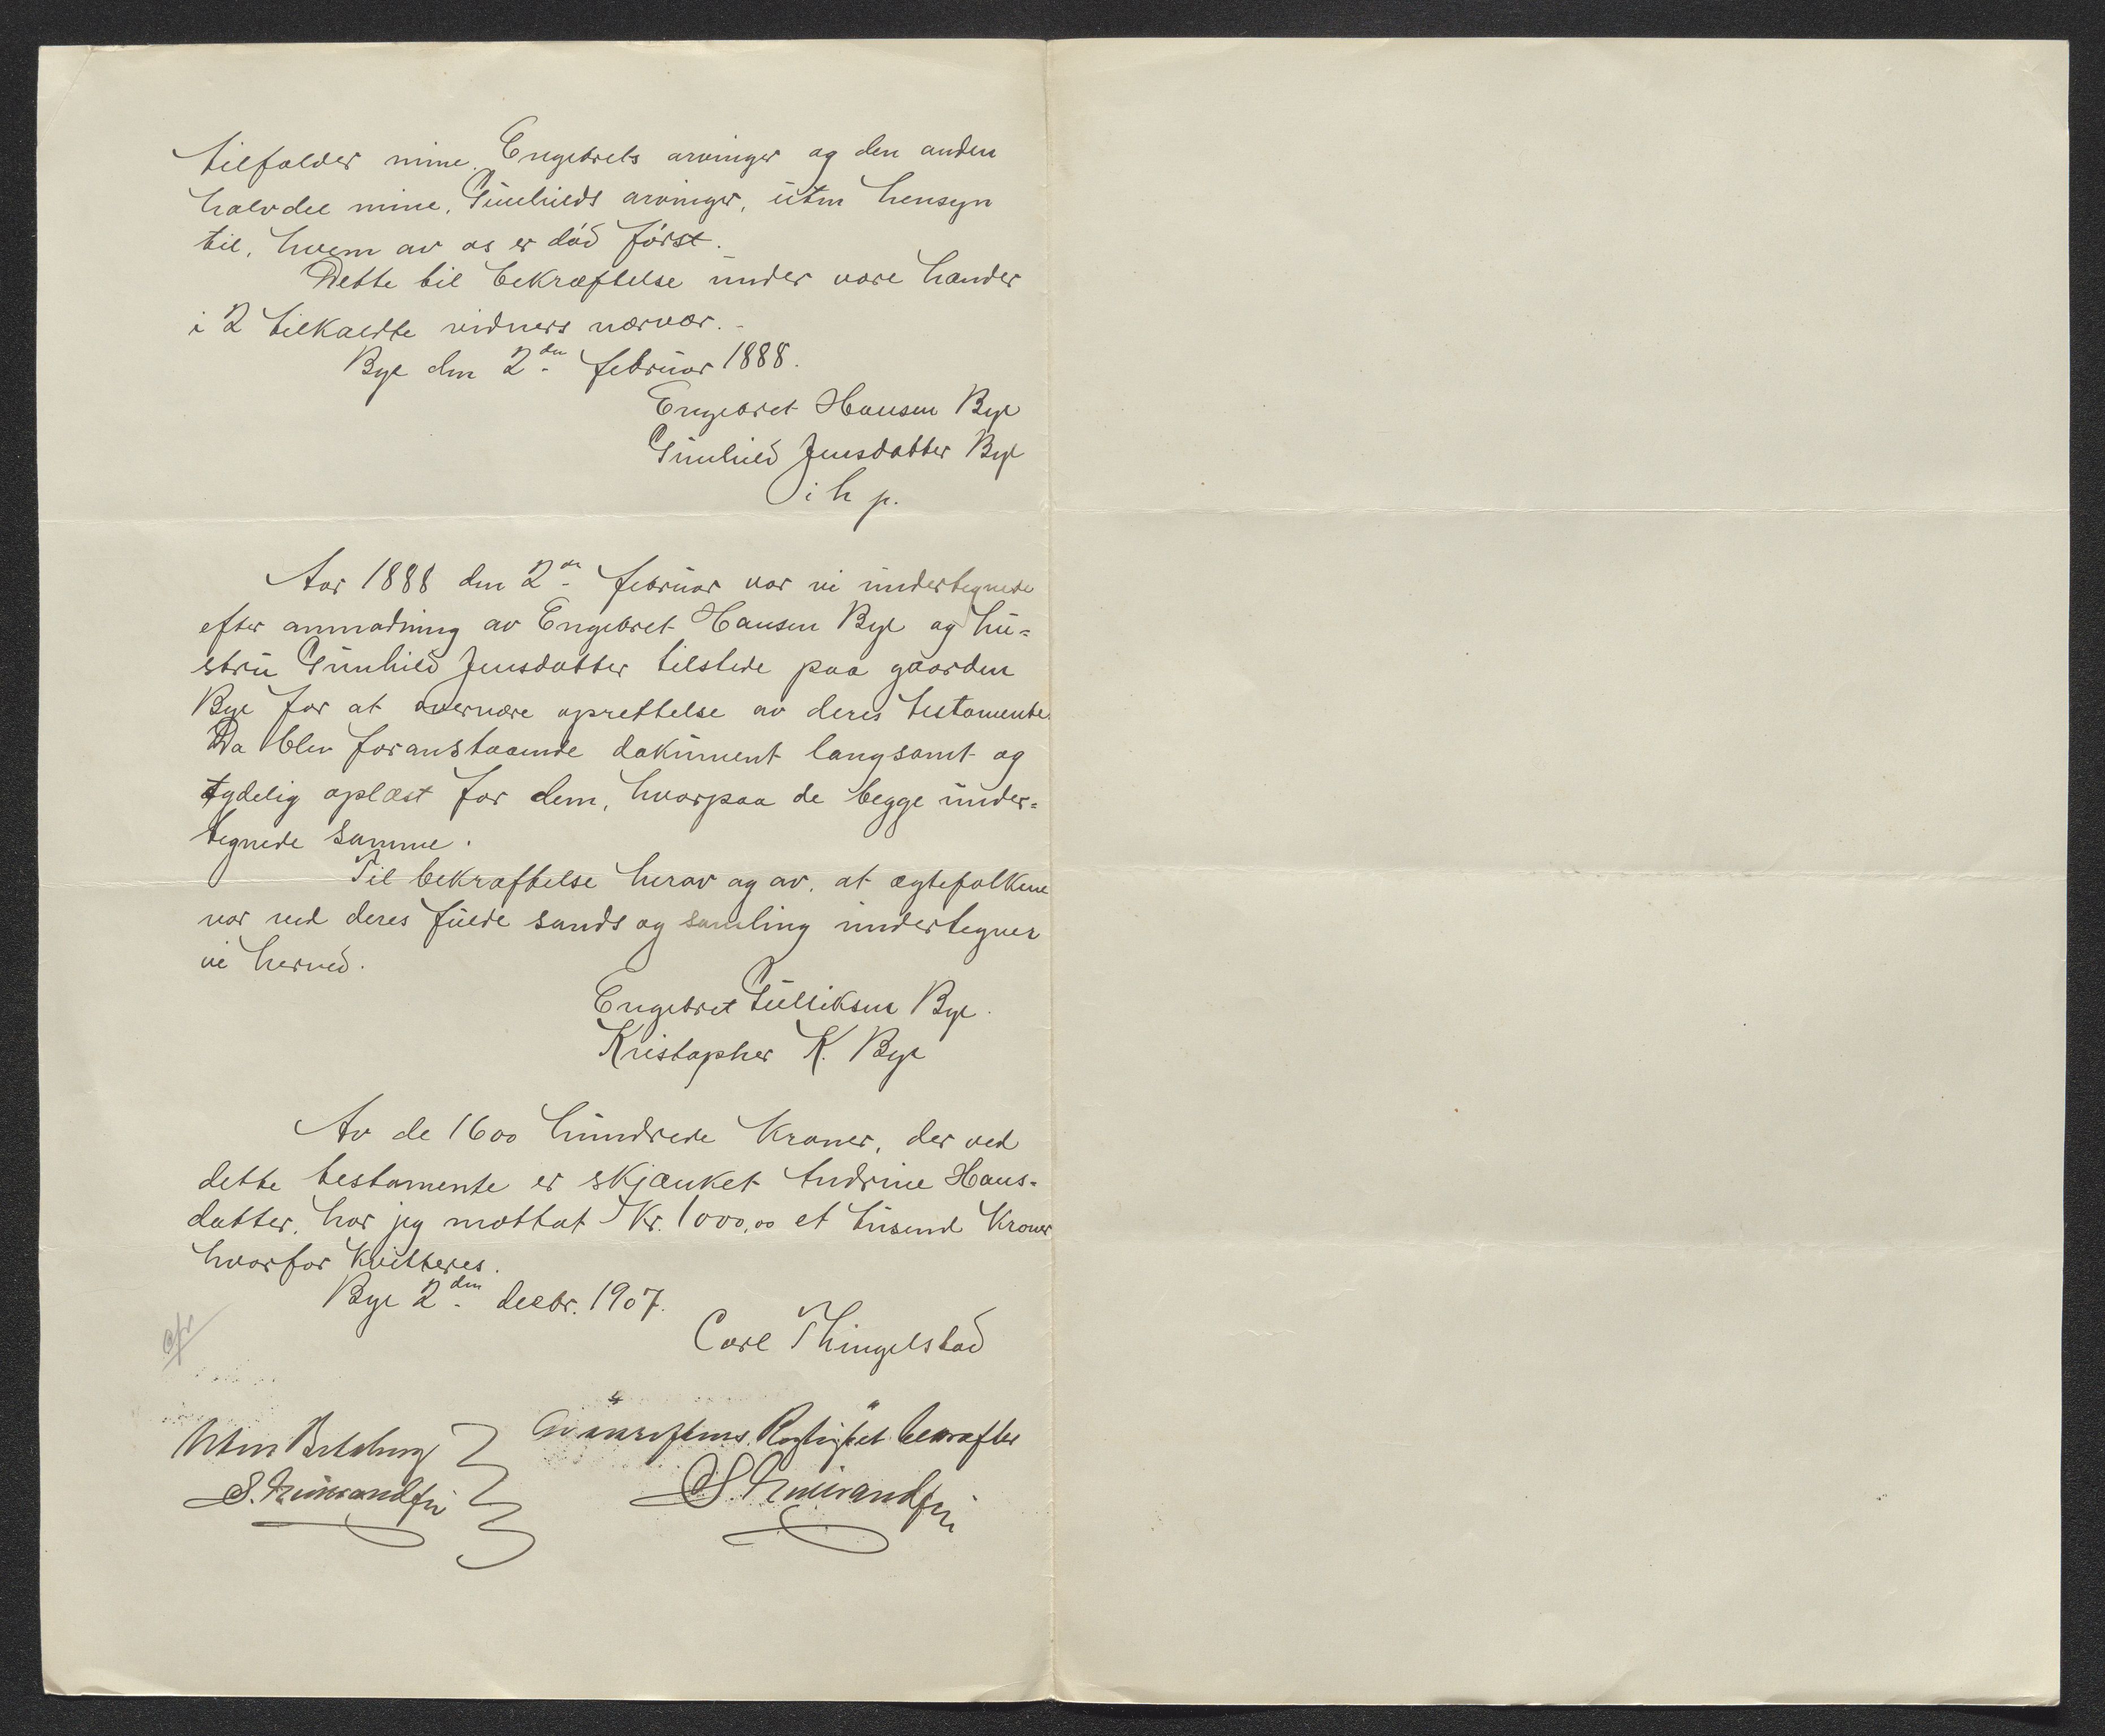 tilfalder mine, Engebrets arvinger og den anden
halvdel mine, Gunhilds arvinger, uten hensyn
til, hvem av os er død først.
Dette til bekræftelse under vore hænder
i 2 tilkaldte vidners nærvær.
Bye den 2den februar 1888.
Engebret Hansen Bye
Gunhild Jensdatter Bye
i h p.
Aar 1888 den 2den februar var vi undertegnede
efter anmodning av Engebret Hansen Bye og hu-
stru Gunhild Jensdatter tilstede paa gaarden
Bye for at overvære oprettelse av deres testamente.
Da blev foranstaaende dokument langsomt og
tydelig oplæst for dem, hvorpaa de begge under-
tegnede samme.
Til bekræftelse herav og av, at ægtefolkene
var ved deres fulde sands og samling undertegner
vi herved.
Engebret Gulliksen Bye.
Kristopher K. Bye
Av de 1600 hundrede Kroner, der ved
dette testamente er skjænket Andrine Hans-
datter, har jeg mottat Kr. 1000,00 et tusend Kroner
hvorfor kvitteres.
Bye 2den decbr. 1907.
Carl Thingelstad
Uten Betaling
Avskriftens Rigtighet bekræfter